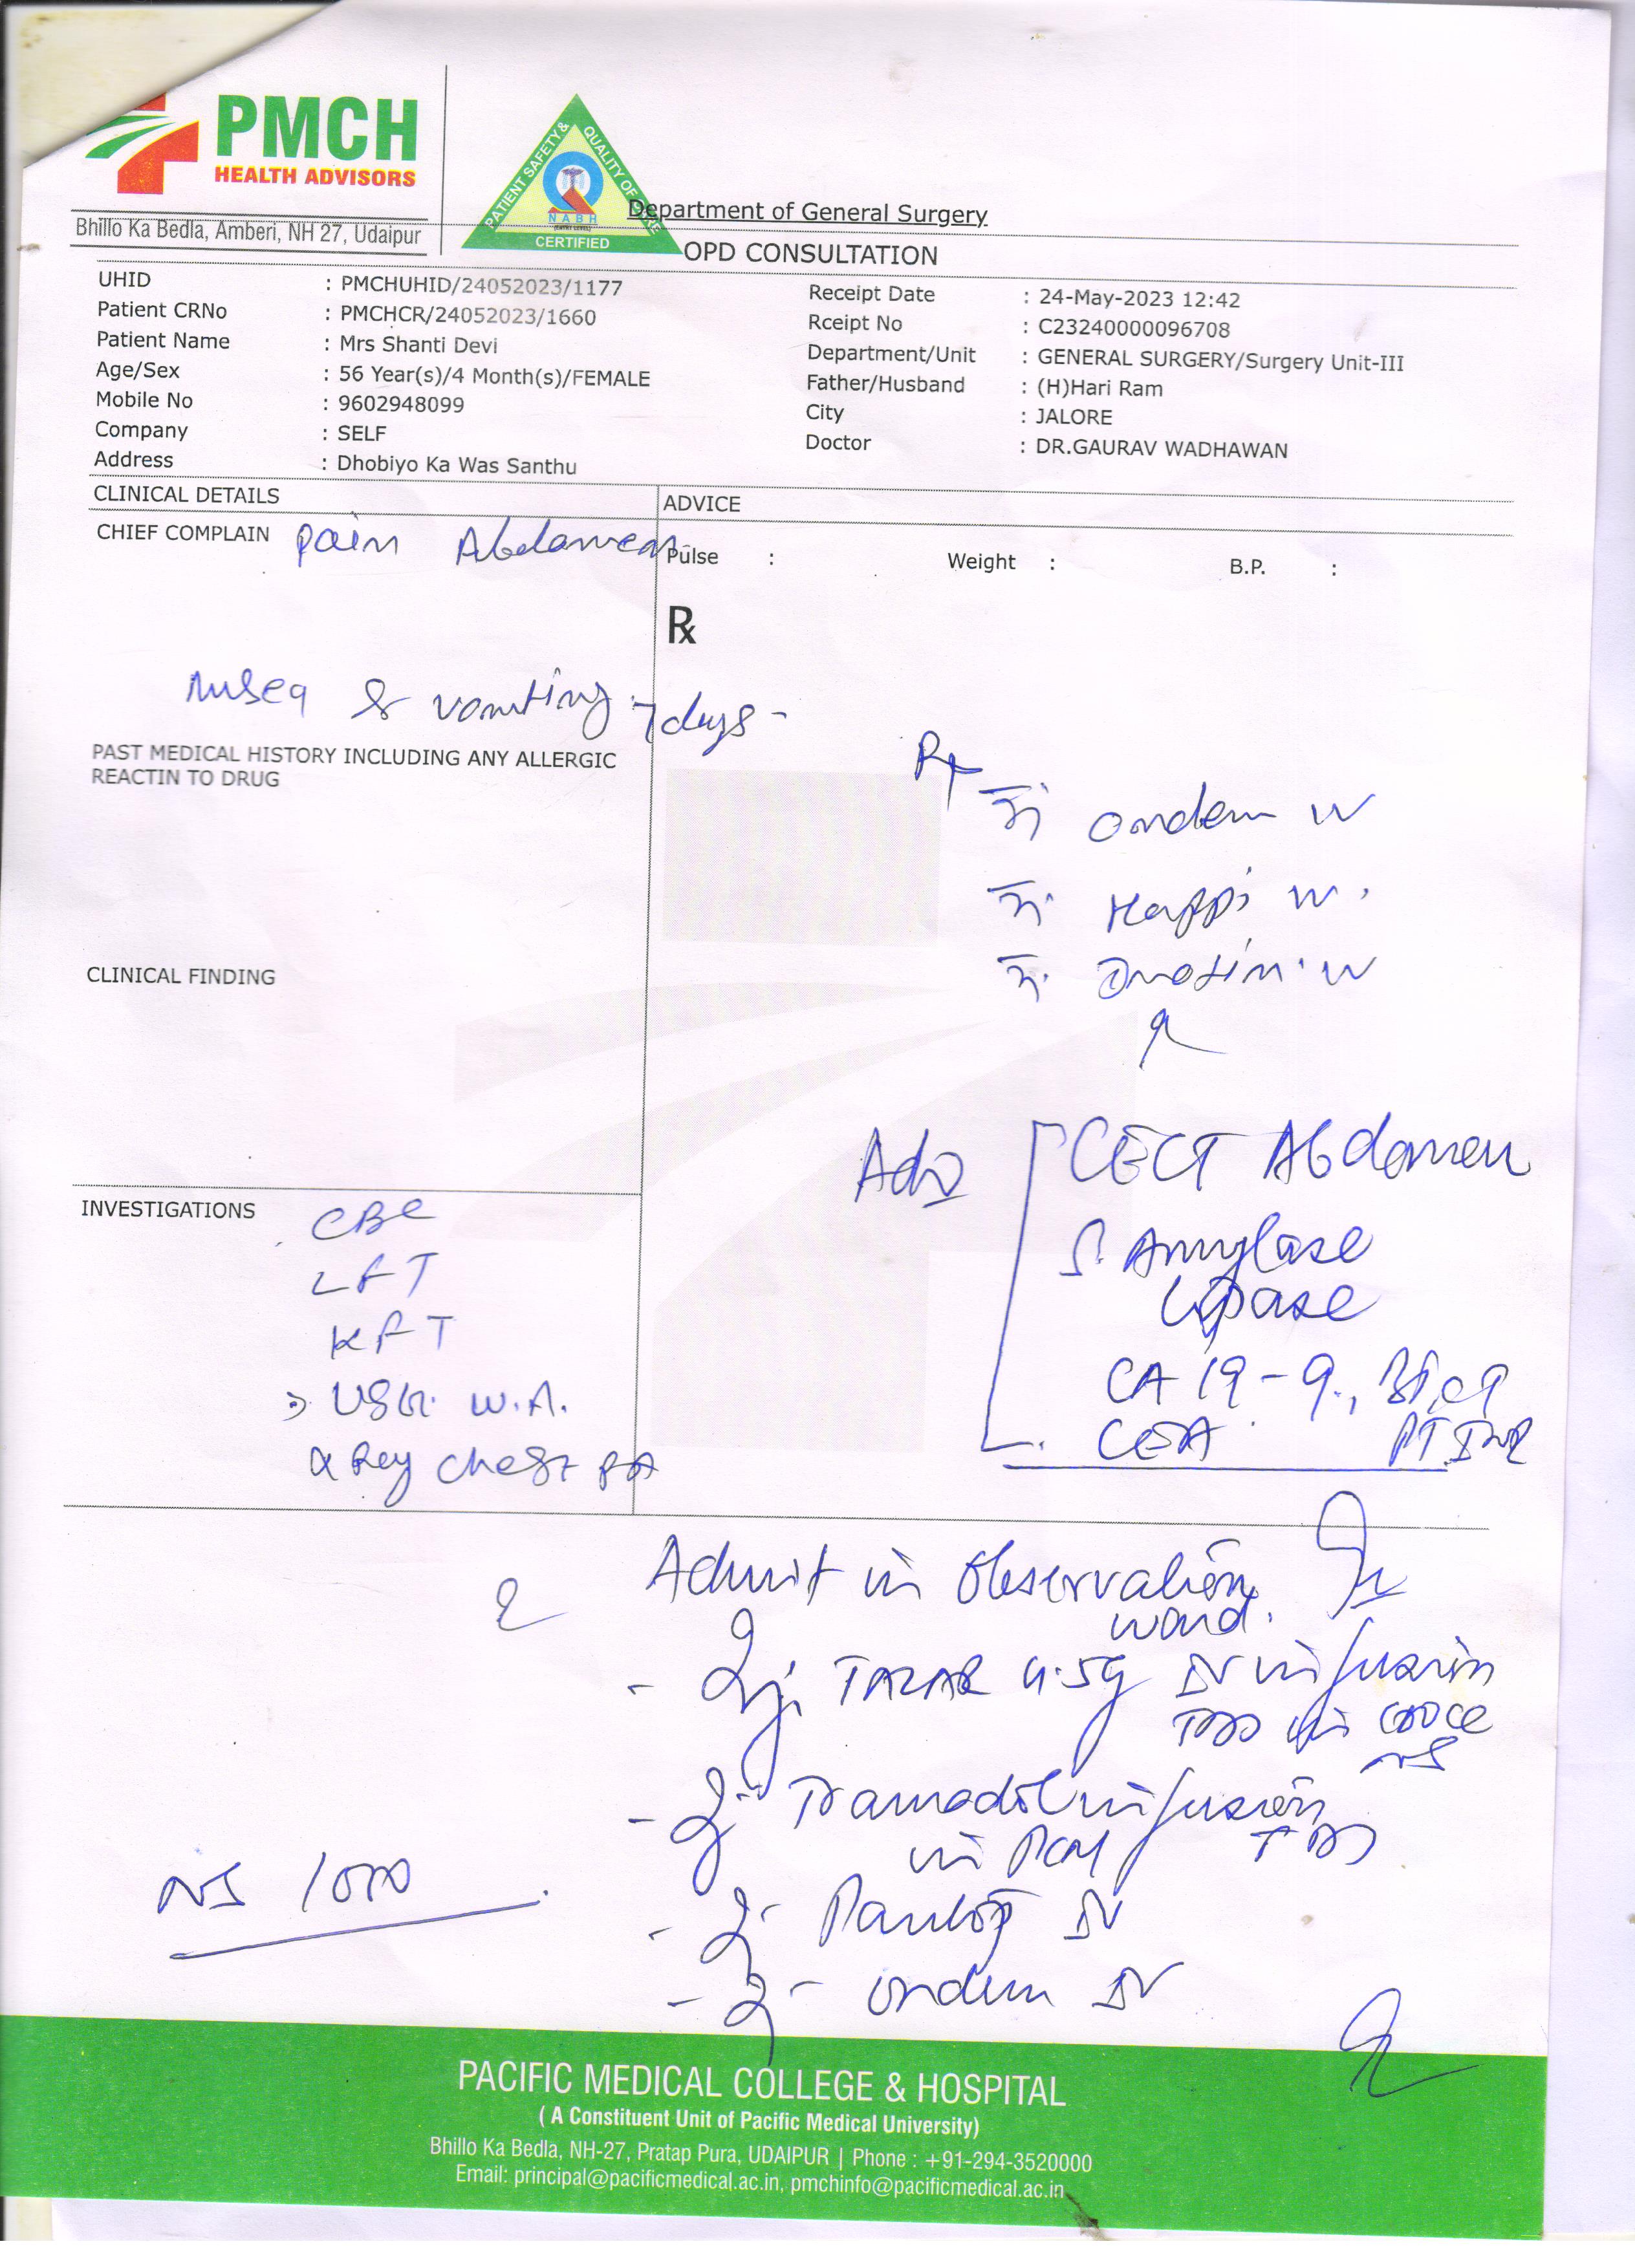 PMCH
HEALTH ADVISORS
Bhillo Ka Bedla, Amberi, NH 27, Udaipur
PATIENT SAFETY & QUALITY OF CARE
NABH
CERTIFIED
Department of General Surgery
OPD CONSULTATION
UHID : PMCHUHID/24052023/1177
Patient CRNo : PMCHCR/24052023/1660
Patient Name : Mrs Shanti Devi
Age/Sex : 56 Year(s)/4 Month(s)/FEMALE
Mobile No : 9602948099
Company : SELF
Address : Dhobiyo Ka Was Santhu
Receipt Date : 24-May-2023 12:42
Rceipt No : C23240000096708
Department/Unit : GENERAL SURGERY/Surgery Unit-III
Father/Husband : (H)Hari Ram
City : JALORE
Doctor : DR.GAURAV WADHAWAN
CLINICAL DETAILS
ADVICE
CHIEF COMPLAIN Pain Abdomen
Pulse : Weight : B.P. :
Rx
& vomiting 7 days -
PAST MEDICAL HISTORY INCLUDING ANY ALLERGIC
REACTIN TO DRUG
Rx
Ondem IV
Happi IV
IV
CLINICAL FINDING
Adv CECT Abdomen
S. Amylase
Lipase
CA 19-9,
CEA PT INR
INVESTIGATIONS CBC
LFT
KFT
USG W.A.
X Ray Chest PA
Admit in Observation
ward.
- Inj. TAZAR 4.5g IV infusion
TDS in 100cc
NS
- Inj Tramadol infusion
in PCM TDS
NS 1000
- Inj Pantop IV
- Inj - ondem IV
PACIFIC MEDICAL COLLEGE & HOSPITAL
( A Constituent Unit of Pacific Medical University)
Bhillo Ka Bedla, NH-27, Pratap Pura, UDAIPUR | Phone : +91-294-3520000
Email: principal@pacificmedical.ac.in, pmchinfo@pacificmedical.ac.in